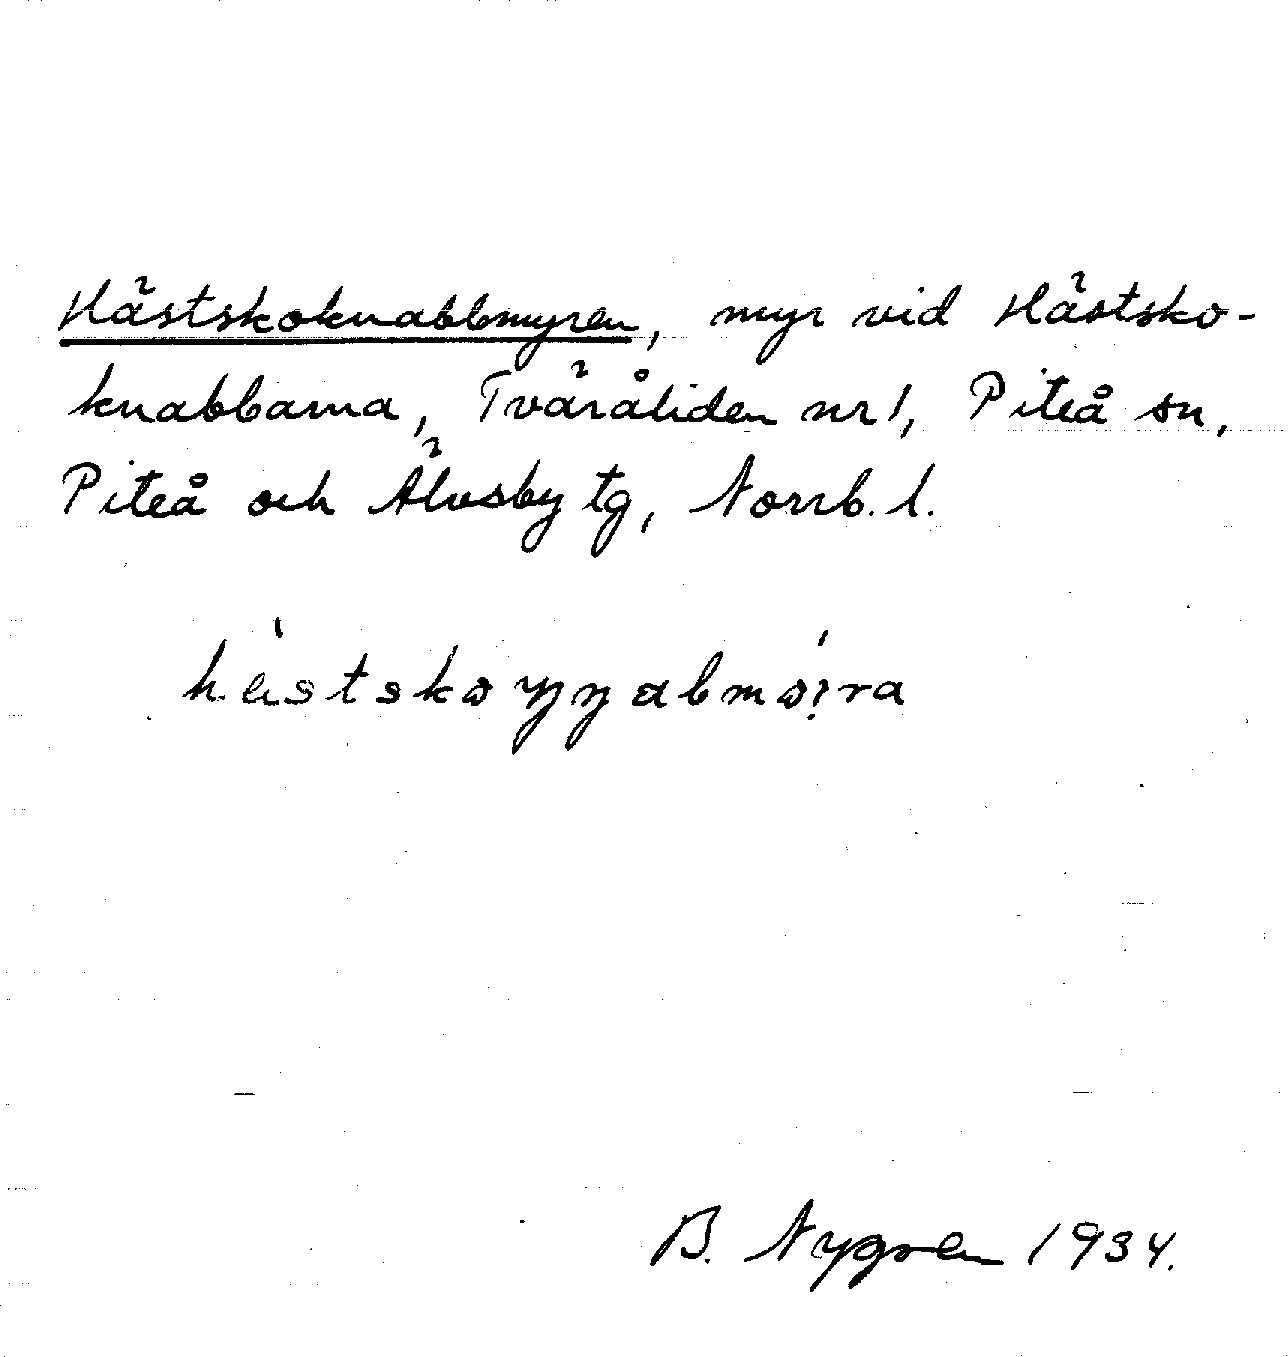 Hästskoknabbmyren, myr vid Hästsko-
knabbarna, Tväråliden nr 1, Piteå sn,
Piteå och Älvsby tg, Norrb. l.
B. Nygren 1934.